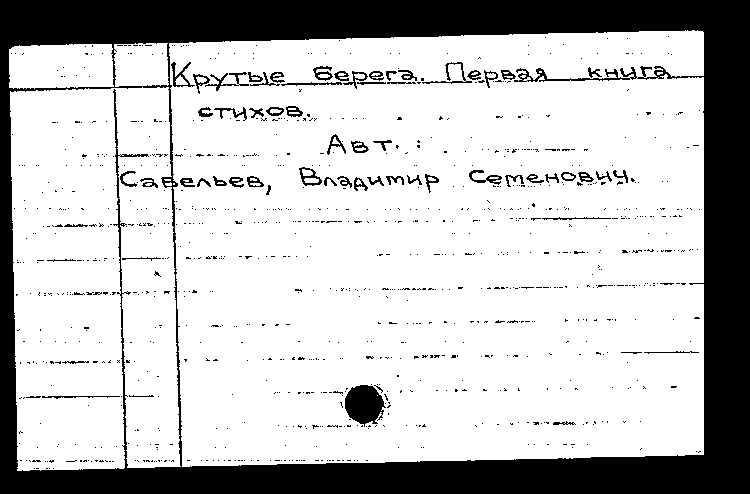 Крутые берега. Первая книга
стихов.
Авт. :
Савельев, Владимир Семенович.